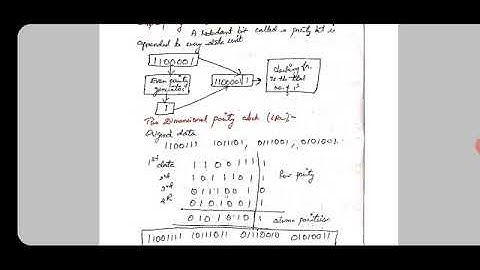 A redundant bit called a parity bit is
appended to every data unit
1100001
Even parity
generator
1
1100001 1
checking fn.
is the total
no. of 1's
Two Dimensional parity check (LRC):-
Original data
1100111 1011101, 0111001, 0101001.
1st data 1 1 0 0 1 1 1 1
2nd 1 0 1 1 1 0 1 1
3rd 0 1 1 1 0 0 1 0
4th 0 1 0 1 0 0 1 1
Row parity
0 1 0 1 0 1 0 1
column parities
11001111 10111011 01110010 01010011